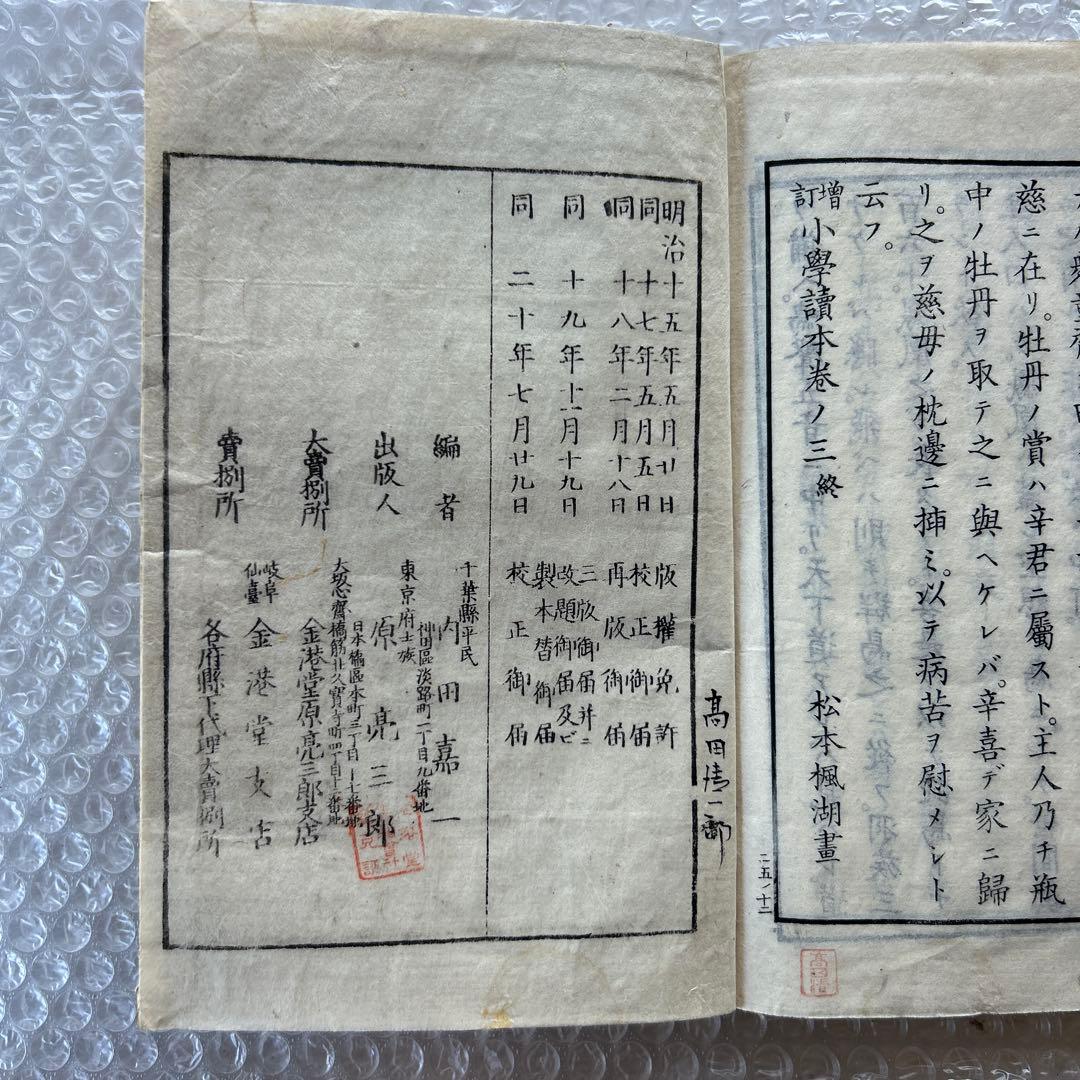 慈ニ在リ。牡丹ノ賞ハ辛君ニ屬スト。主人乃チ瓶
中ノ牡丹ヲ取テ之ニ與ヘケレバ。辛喜デ家ニ歸
リ。之ヲ慈母ノ枕邊ニ挿ミ。以テ病苦ヲ慰メシト
云フ。
增訂小學讀本卷ノ三終 松本楓湖畫
二五ノ十二
高田
明治十五年五月廿日 版權免許
同十七年五月五日 校正御届
同十八年二月十八日 再版御届
同 十九年十一月十九日 三版御届幷ニ改題御届及ビ製本替御届
同 二十年七月廿九日 校正御届
編者 千葉縣平民 内田嘉一
神田區淡路町二丁目九番地
出版人 東京府士族 原亮三郎
日本橋區本町三丁目十七番地
大賣捌所 大坂心齋橋筋北久寶寺町四丁目十二番地 金港堂原亮三郎支店
岐阜
仙臺
金港堂支店
賣捌所 各府縣下代理大賣捌所